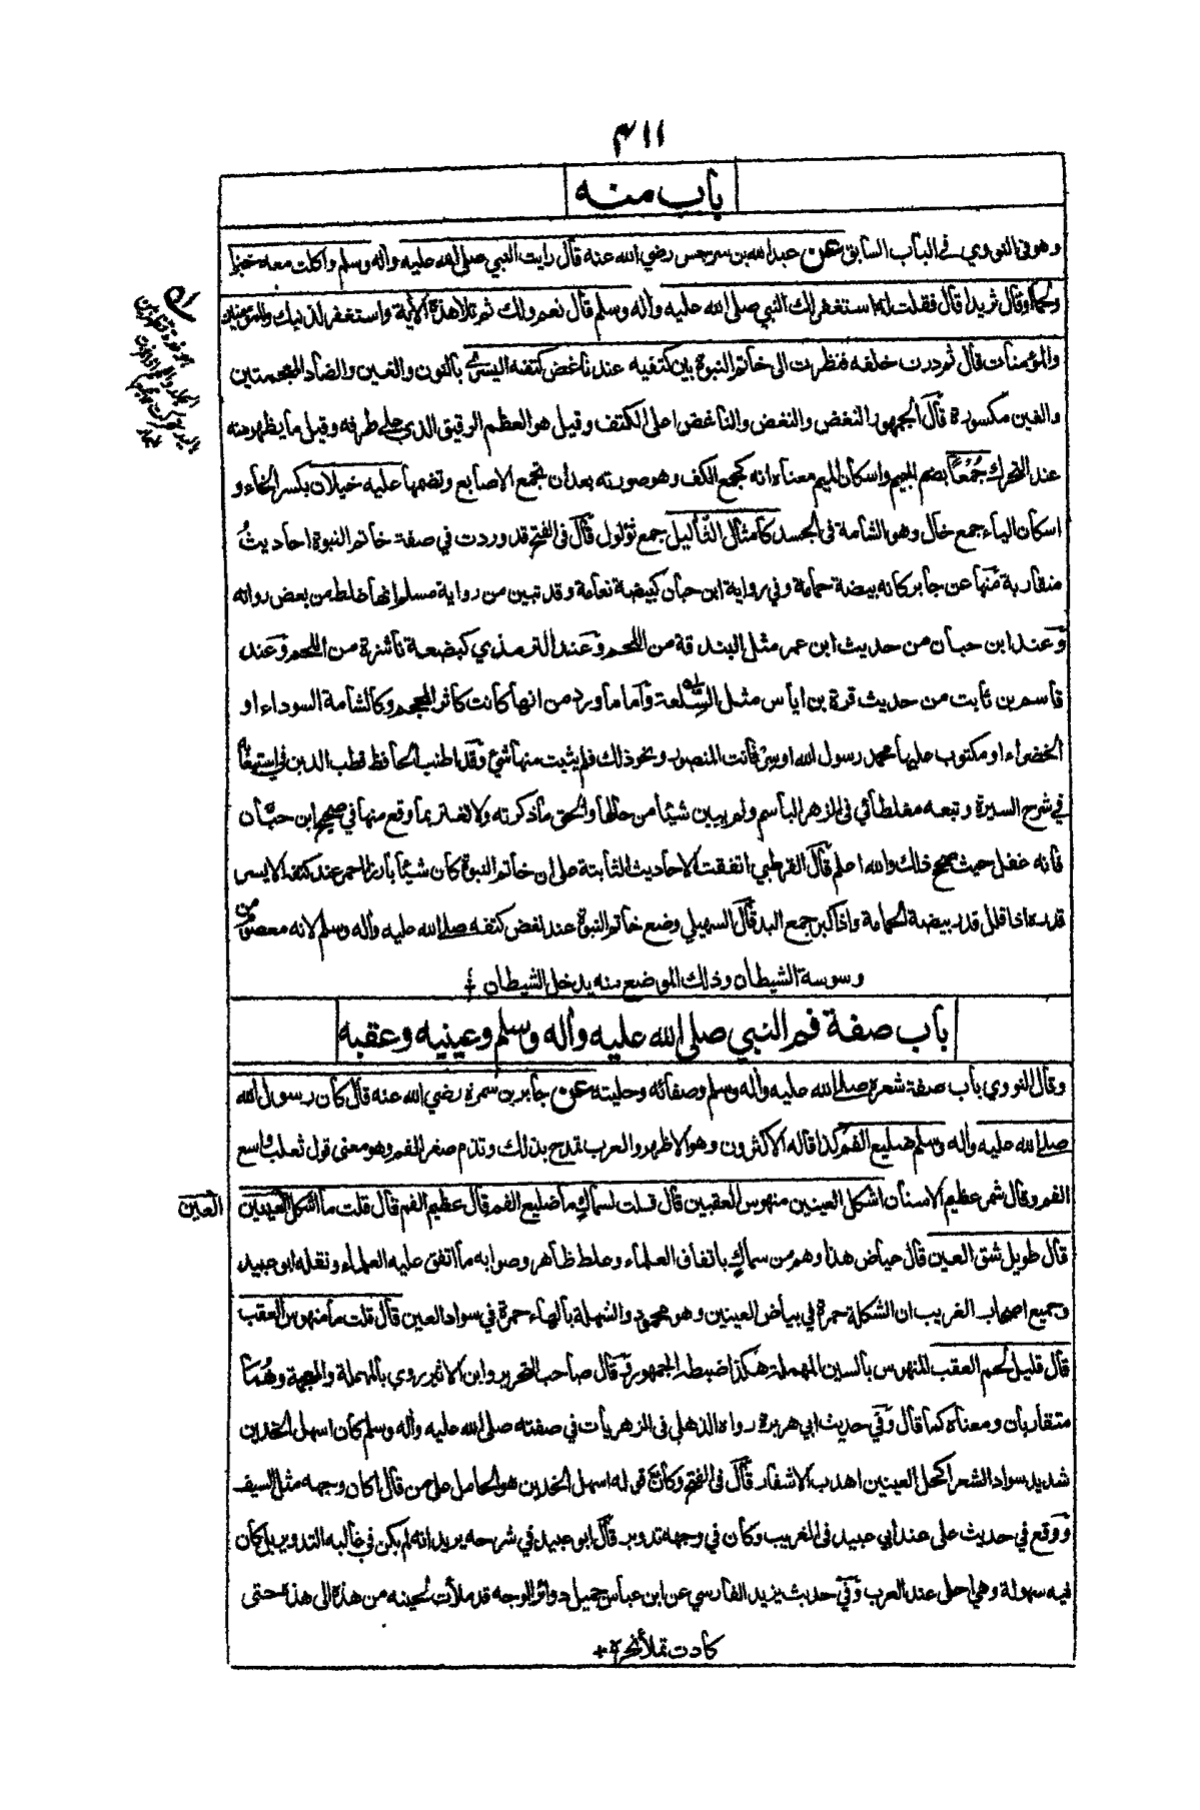 ٤١١
باب منه
وهو في النووي في الباب السابق عن عبد الله بن سرجس رضي الله عنه قال رايت النبي صلى الله عليه وآله وسلم واكلت معه خبزا
ولحما وقال ثريدا قال فقلت له استغفر لك النبي صلى الله عليه وآله وسلم قال نعم ولك ثم تلا هذه الآية واستغفر لذنبك وللمؤمنين
والمؤمنات قال ثم درت خلفه فنظرت الى خاتم النبوة بين كتفيه عند ناغض كتفه اليسرى بالنون والغين والضاد المعجمتين
والغين مكسورة قال الجمهور النغض والنغض والناغض اعلى الكتف وقيل هو العظم الرقيق الذي على طرفه وقيل ما يظهر منه
عند التحرك جُمْعًا بضم الجيم واسكان الميم معناه انه كجمع الكف وهو صورته بعد ان تجمع الاصابع وتضمها عليه خيلان بكسر الخاء و
اسكان الياء جمع خال وهو الشامة في الجسد كأمثال الثآليل جمع ثؤلول قال في الفتح قد وردت في صفة خاتم النبوة احاديث
متقاربة منها عن جابر كانه بيضة حمامة وفي رواية ابن حبان كبيضة نعامة وقد تبين من رواية مسلم انها غلط من بعض رواته
وعند ابن حبان من حديث ابن عمر مثل البندقة من اللحم وعند الترمذي كبضعة ناشزة من اللحم وعند
قاسم بن ثابت من حديث قرة بن اياس مثل السِّلعة وأما ما ورد من انها كانت كاثر المحجم وكالشامة السوداء او
الخضراء او مكتوب عليها محمد رسول الله او سِرْ فانت المنصور ونحو ذلك فلم يثبت منها شئ وقد اطنب الحافظ قطب الدين في استيعابها
في شرح السيرة وتبعه مغلطائي في الزهر الباسم ولم يبين شيئا من حالها والحق ما ذكرته ولا تغتر بما وقع منها في صحيح ابن حبان
فانه غفل حيث صحح ذلك والله اعلم قال القرطبي اتفقت الاحاديث الثابتة على ان خاتم النبوة كان شيئا بارزا احمر عند كتفه الايسر
قدره اذا قلل قدر بيضة الحمامة واذا كبر جمع اليد قال السهيلي وضع خاتم النبوة عند نغض كتفه صلى الله عليه وآله وسلم لانه معصوم من
وسوسة الشيطان وذلك الموضع منه يدخل الشيطان
باب صفة فم النبي صلى الله عليه وآله وسلم وعينيه وعقبه
وقال النووي باب صفة شعره صلى الله عليه وآله وسلم وصفاته وحليته عن جابر بن سمرة رضي الله عنه قال كان رسول الله
صلى الله عليه وآله وسلم ضليع الفم كذا قاله الاكثرون وهو الاظهر والعرب تمدح بذلك وتذم صغر الفم وهو معنى قول ثعلب واسع
الفم وقال شمر عظيم الاسنان اشكل العينين منهوس العقبين قال قلت لسماك ما ضليع الفم قال عظيم الفم قال قلت ما اشكل العينين
العين
قال طويل شق العين قال عياض هذا وهم من سماك باتفاق العلماء وغلط ظاهر وصوابه ما اتفق عليه العلماء ونقله ابو عبيد
وجميع اصحاب الغريب ان الشكلة حمرة في بياض العينين وهو محمود والشهلة بالهاء حمرة في سواد العين قال قلت ما منهوس العقب
قال قليل لحم العقب المنهوس بالسين المهملة هكذا ضبطه الجمهور وقال صاحب التحرير وابن الاثير روي بالمهملة والمعجمة وهُمَا
متقاربان ومعناه كما قال وفي حديث ابي هريرة رواه الذهلي في الزهريات في صفته صلى الله عليه وآله وسلم كان اسهل الخدين
شديد سواد الشعر اكحل العينين اهدب الاشفار قال في الفتح وكأنّ قوله اسهل الخدين هو الحامل على من قال اكان وجهه مثل السيف
ووقع في حديث علي عند ابي عبيد في الغريب وكان في وجهه تدوير قال ابو عبيد في شرحه يريد انه لم يكن في غالبه التدوير بل كان
فيه سهولة وهي احلى عند العرب وفي حديث يزيد الفارسي عن ابن عباس جميل دوائر الوجه قد ملأت لحيته من هذه الى هذه حتى
كادت تملأ نحره